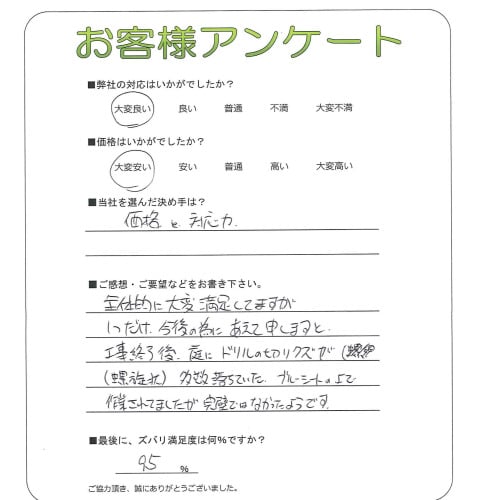 お客様アンケート
■弊社の対応はいかがでしたか？
大変良い 良い 普通 不満 大変不満
■価格はいかがでしたか？
大変安い 安い 普通 高い 大変高い
■当社を選んだ決め手は？
価格と対応力.
■ご感想・ご要望などをお書き下さい。
全体的に大変満足してますが
1つだけ、今後の為にあえて申しますと、
工事終了後、庭にドリルの切リクズが
(螺旋状) 多数落ちていた。ブルーシートの上で
作業されてましたが完璧ではなかったようです。
■最後に、ズバリ満足度は何%ですか？
95 %
ご協力頂き、誠にありがとうございました。